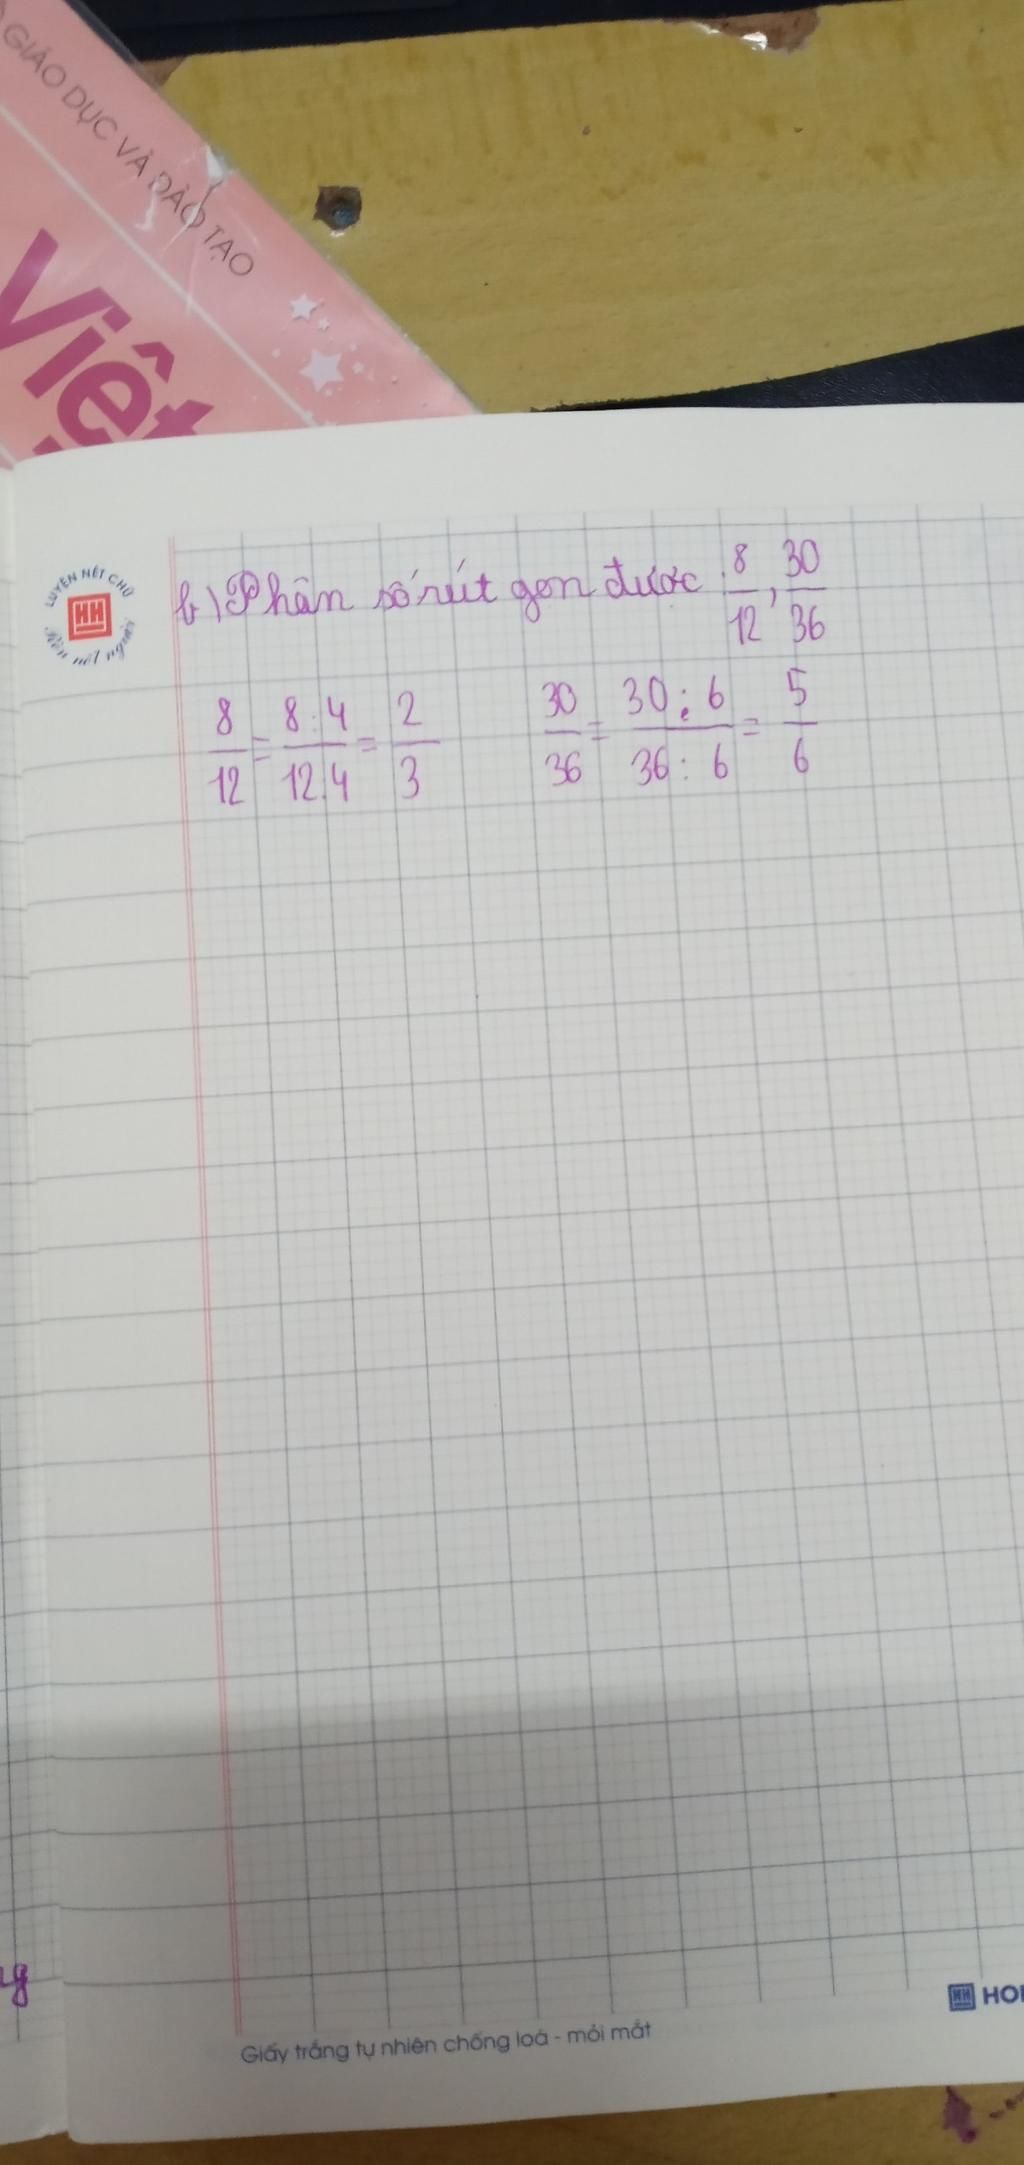 GIÁO DỤC VÀ ĐÀO TẠO
Việt
LUYỆN NÉT CHỮ
HH
Rèn nết người
b) Phân số rút gọn được : 8/12, 30/36
8/12 = 8:4/12:4 = 2/3 30/36 = 30:6/36:6 = 5/6
Giấy trắng tự nhiên chống loá - mỏi mắt
HH